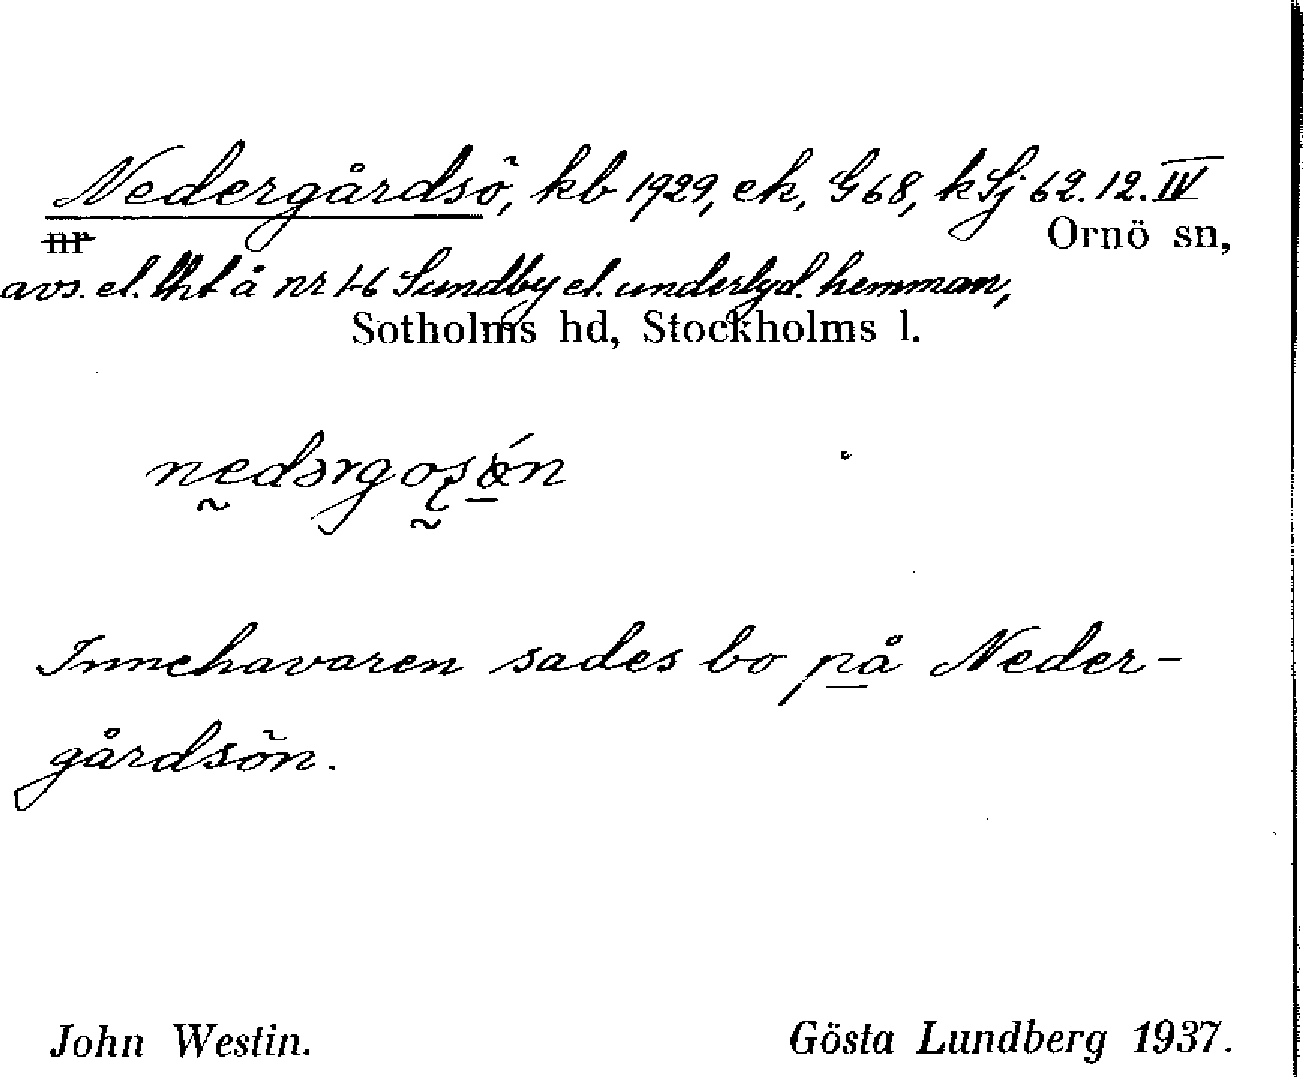 Nedergårdsö, kb 1929, ek, G 68, k Sj 62.12.IV
nr Ornö sn,
avs. el. lht å nr 1-6 Sundby el. underlyd. hemman,
Sotholms hd, Stockholms l.
Innehavaren sades bo på Neder-
gårdsön.
John Westin. Gösta Lundberg 1937.